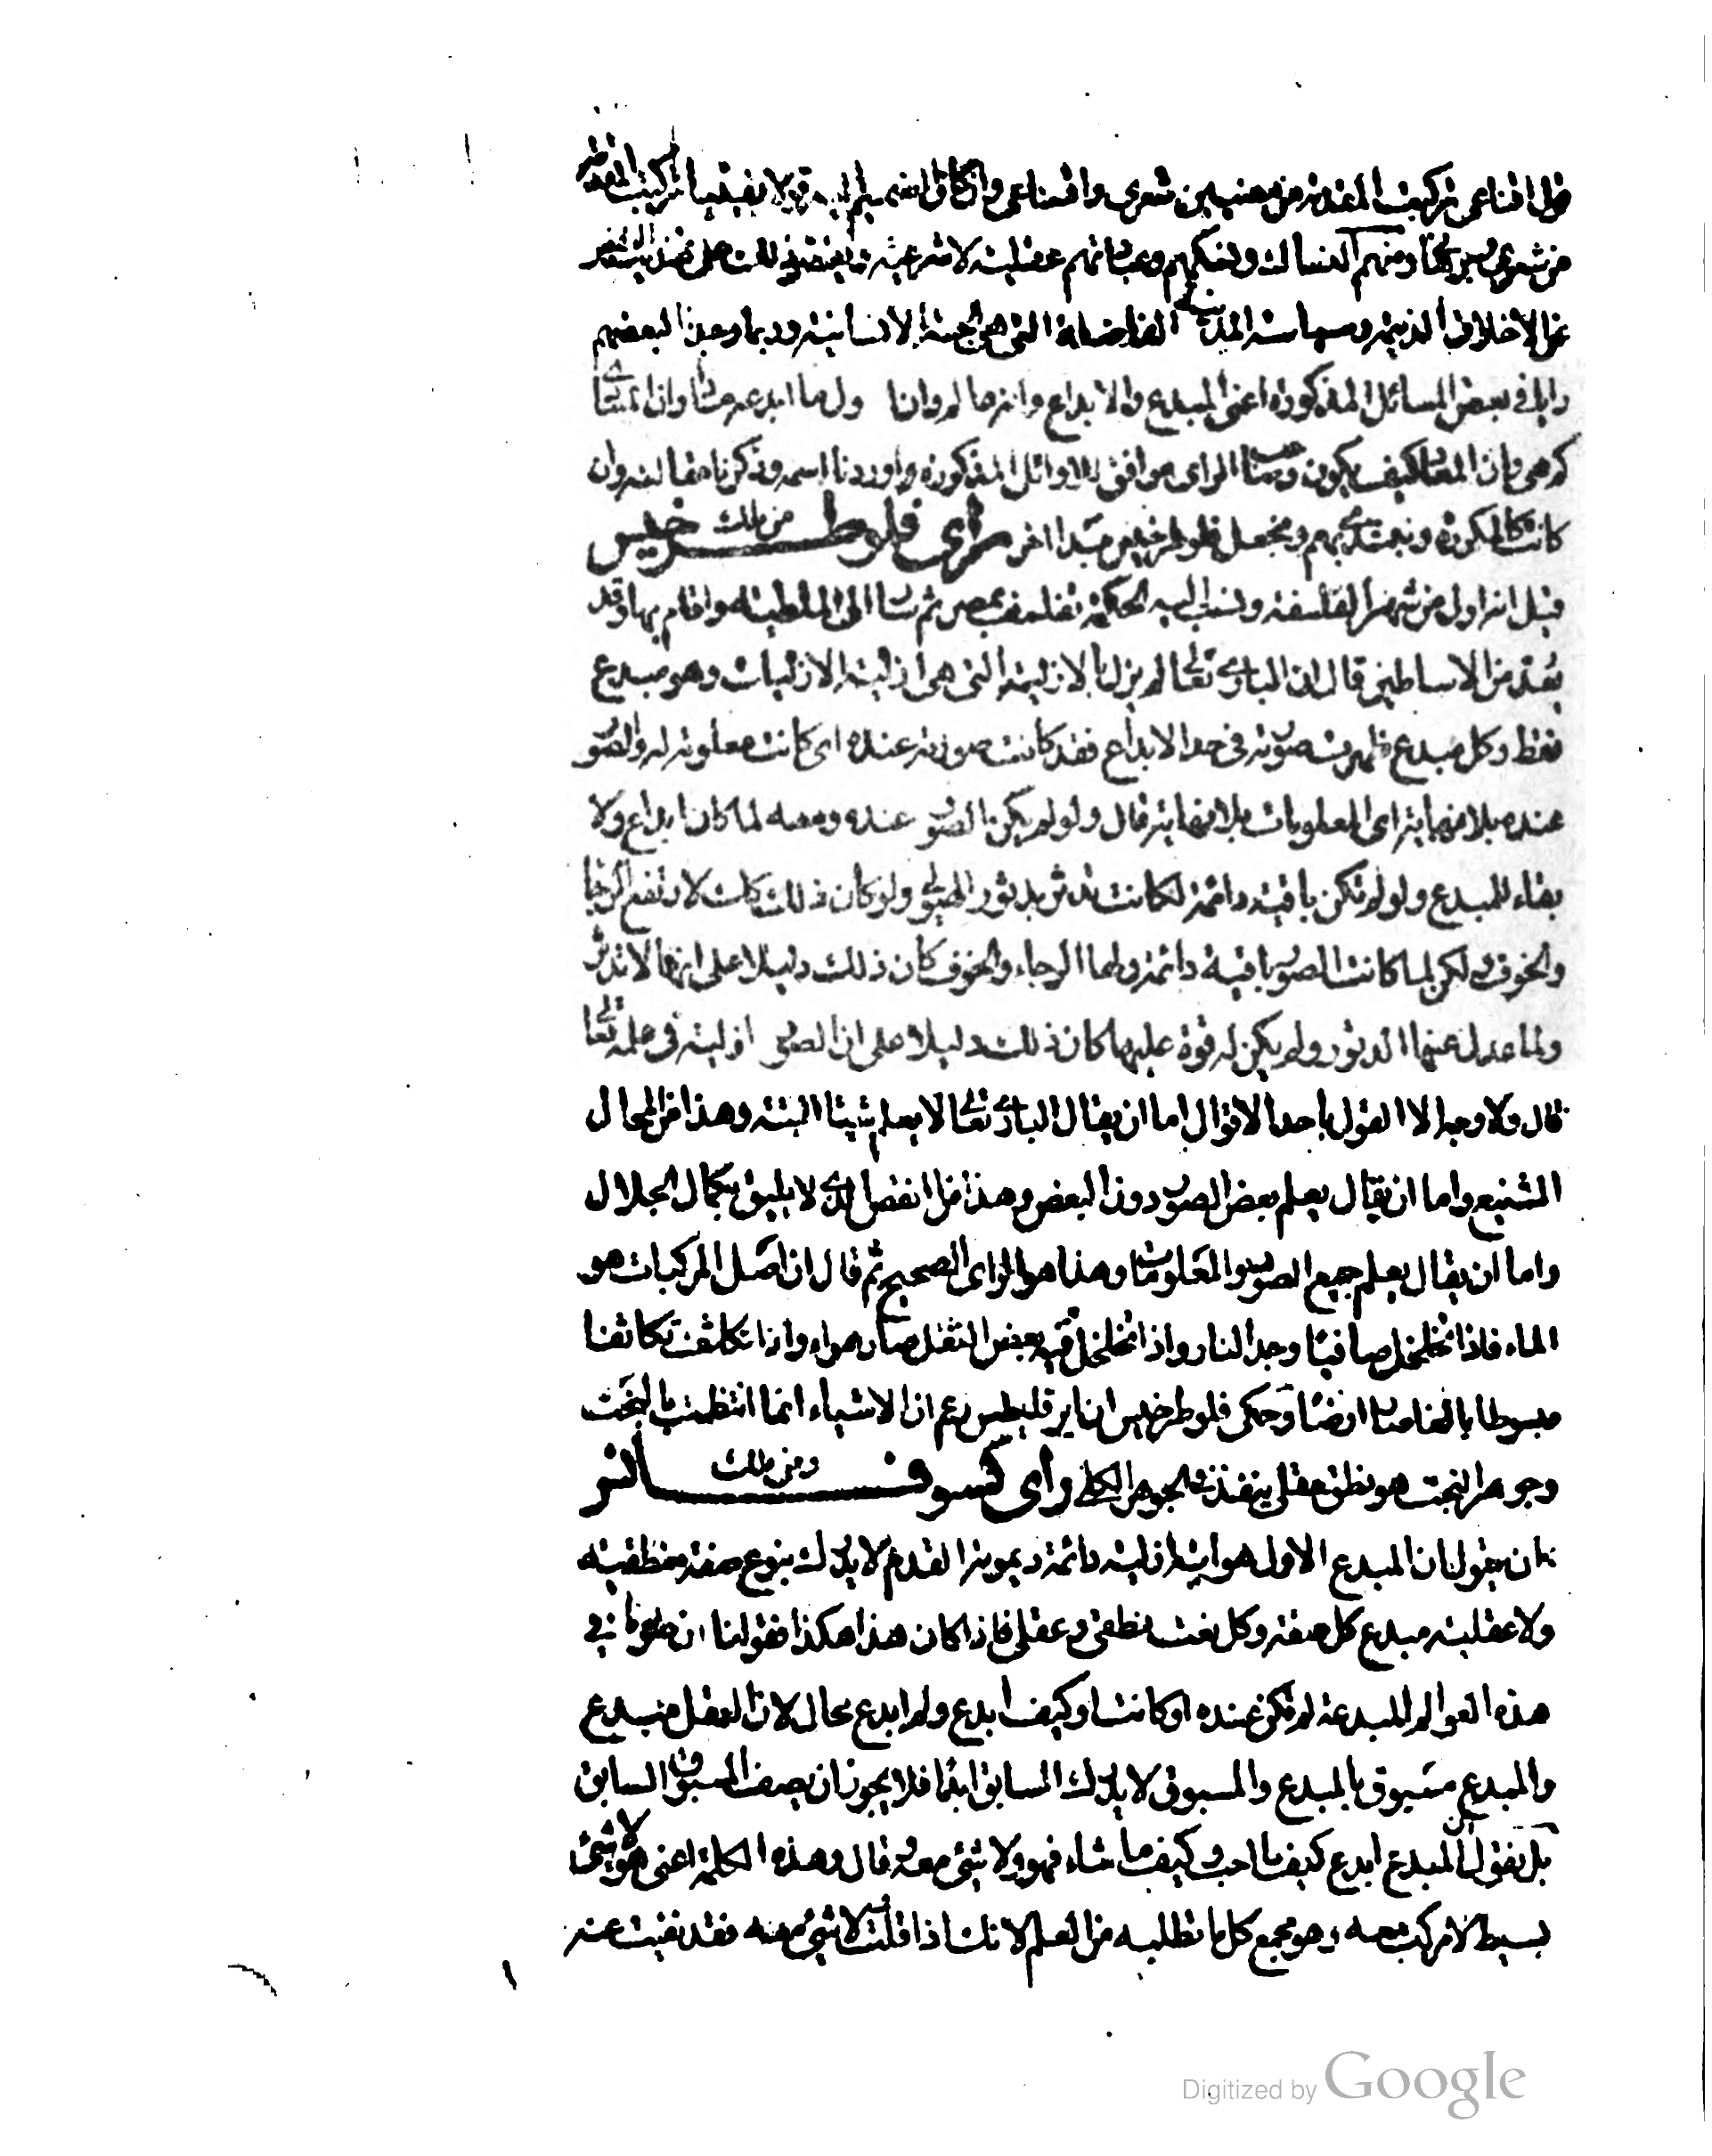 اقناعى تركيب المقدمة من معنيين شعرى واقناعى وان كان الضميم اليه قولا يقينيا تركيب المقدمة
من شعرى وبرهانى ومنهم النساك ونسكهم وعباداتهم عقلية لا شرعية ويقتصر ذلك على تهذيب النفس
عن الاخلاق الذميمة وسياسة المدينة الفاضلة التى هى الجثة الانسانية وربما وجدنا لبعضهم
رايا فى بعض المسائل المذكورة اعنى المبدع والابداع وانه عالم وان اول ما ابدعه ماذا وان المبادى
كم هى وان المعاد كيف يكون وصاحب الراى موافق للاوائل المذكورة واوردنا اسمه وذكرنا مقالته وان
كانت كالمكررة ونبتدى بهم ونجعل فلوطرخيس مبدا اخر راى فلوطرخيس من ذلك
قيل انه اول من شهر بالفلسفة ونسب اليه الحكمة تفلسف بمصر ثم سار الى الملطية واقام بها وقد
يعد من الاساطين قال ان البارى تعالى لم يزل بالازلية التى هى ازلية الازليات وهو مبدع
فقط وكل مبدع ظهرت صورته فى حد الابداع فقد كانت صورته عنده اى كانت معلومة له والصور
عنده بلا نهاية اى المعلومات بلا نهاية قال ولو لم يكن الصور عنده ومعه لما كان ابداع ولا
بقاء للمبدع ولو لم تكن باقية دائمة لكانت تدثر بدثور الهيولى ولو كان ذلك كذلك لارتفع الرجا
والخوف ولكن لما كانت الصور باقية دائمة ولها الرجاء والخوف كان ذلك دليلا على انها لا تدثر
ولما عدل عنها الدثور ولم يكن له قوة عليها كان ذلك دليلا على ان الصور ازلية فى علمه تعالى
قال ولا وجه الا القول باحد الاقوال اما ان يقال البارى تعالى لا يعلم شيئا البتة وهذا من المحال
الشنيع واما ان يقال يعلم بعض الصور دون البعض وهذا من النقص الذى لا يليق بكمال الجلال
واما ان يقال يعلم جميع الصور والمعلومات وهذا هو الراى الصحيح ثم قال ان اصل المركبات هو
الماء فاذا تخلخل صافيا وجد النار واذا تخلخل وفيه بعض الثقل صار هواء واذا تكاثف تكاثفا
مبسوطا بالغا صار ارضا وحكى فلوطرخيس ان ايرقليطيس زعم ان الاشياء انما انتظمت بالبخت
وجوهر البخت هو نطق عقلى ينفذ فى الجوهر الكلى راى كسوفانس ومن ذلك
كان يقول ان المبدع الاول هو انية ازلية دائمة ديمومة القدم لا يدرك بنوع صفة منطقية
ولا عقلية مبدع كل صفة وكل نعت نطقى وعقلى فاذا كان هذا هكذا فقولنا ان صورنا فى
هذه العوالم المبدعة لم تكن عنده او كانت او كيف ابدع ولم ابدع محال لان العقل مبدع
والمبدع مسبوق بالمبدع والمسبوق لا يدرك السابق ابدا فلا يجوز ان يصف المسبوق السابق
بل يقول ان المبدع ابدع كيف ما احب وكيف ما شاء فهو هو ولا شئ معه قال وهذه الكلمة اعنى هو ولا شئ
بسيط لا مركب معه وهو مجمع كل ما نطلبه من العلم لانك اذا قلت ولا شئ معه فقد نفيت عنه
Digitized by Google